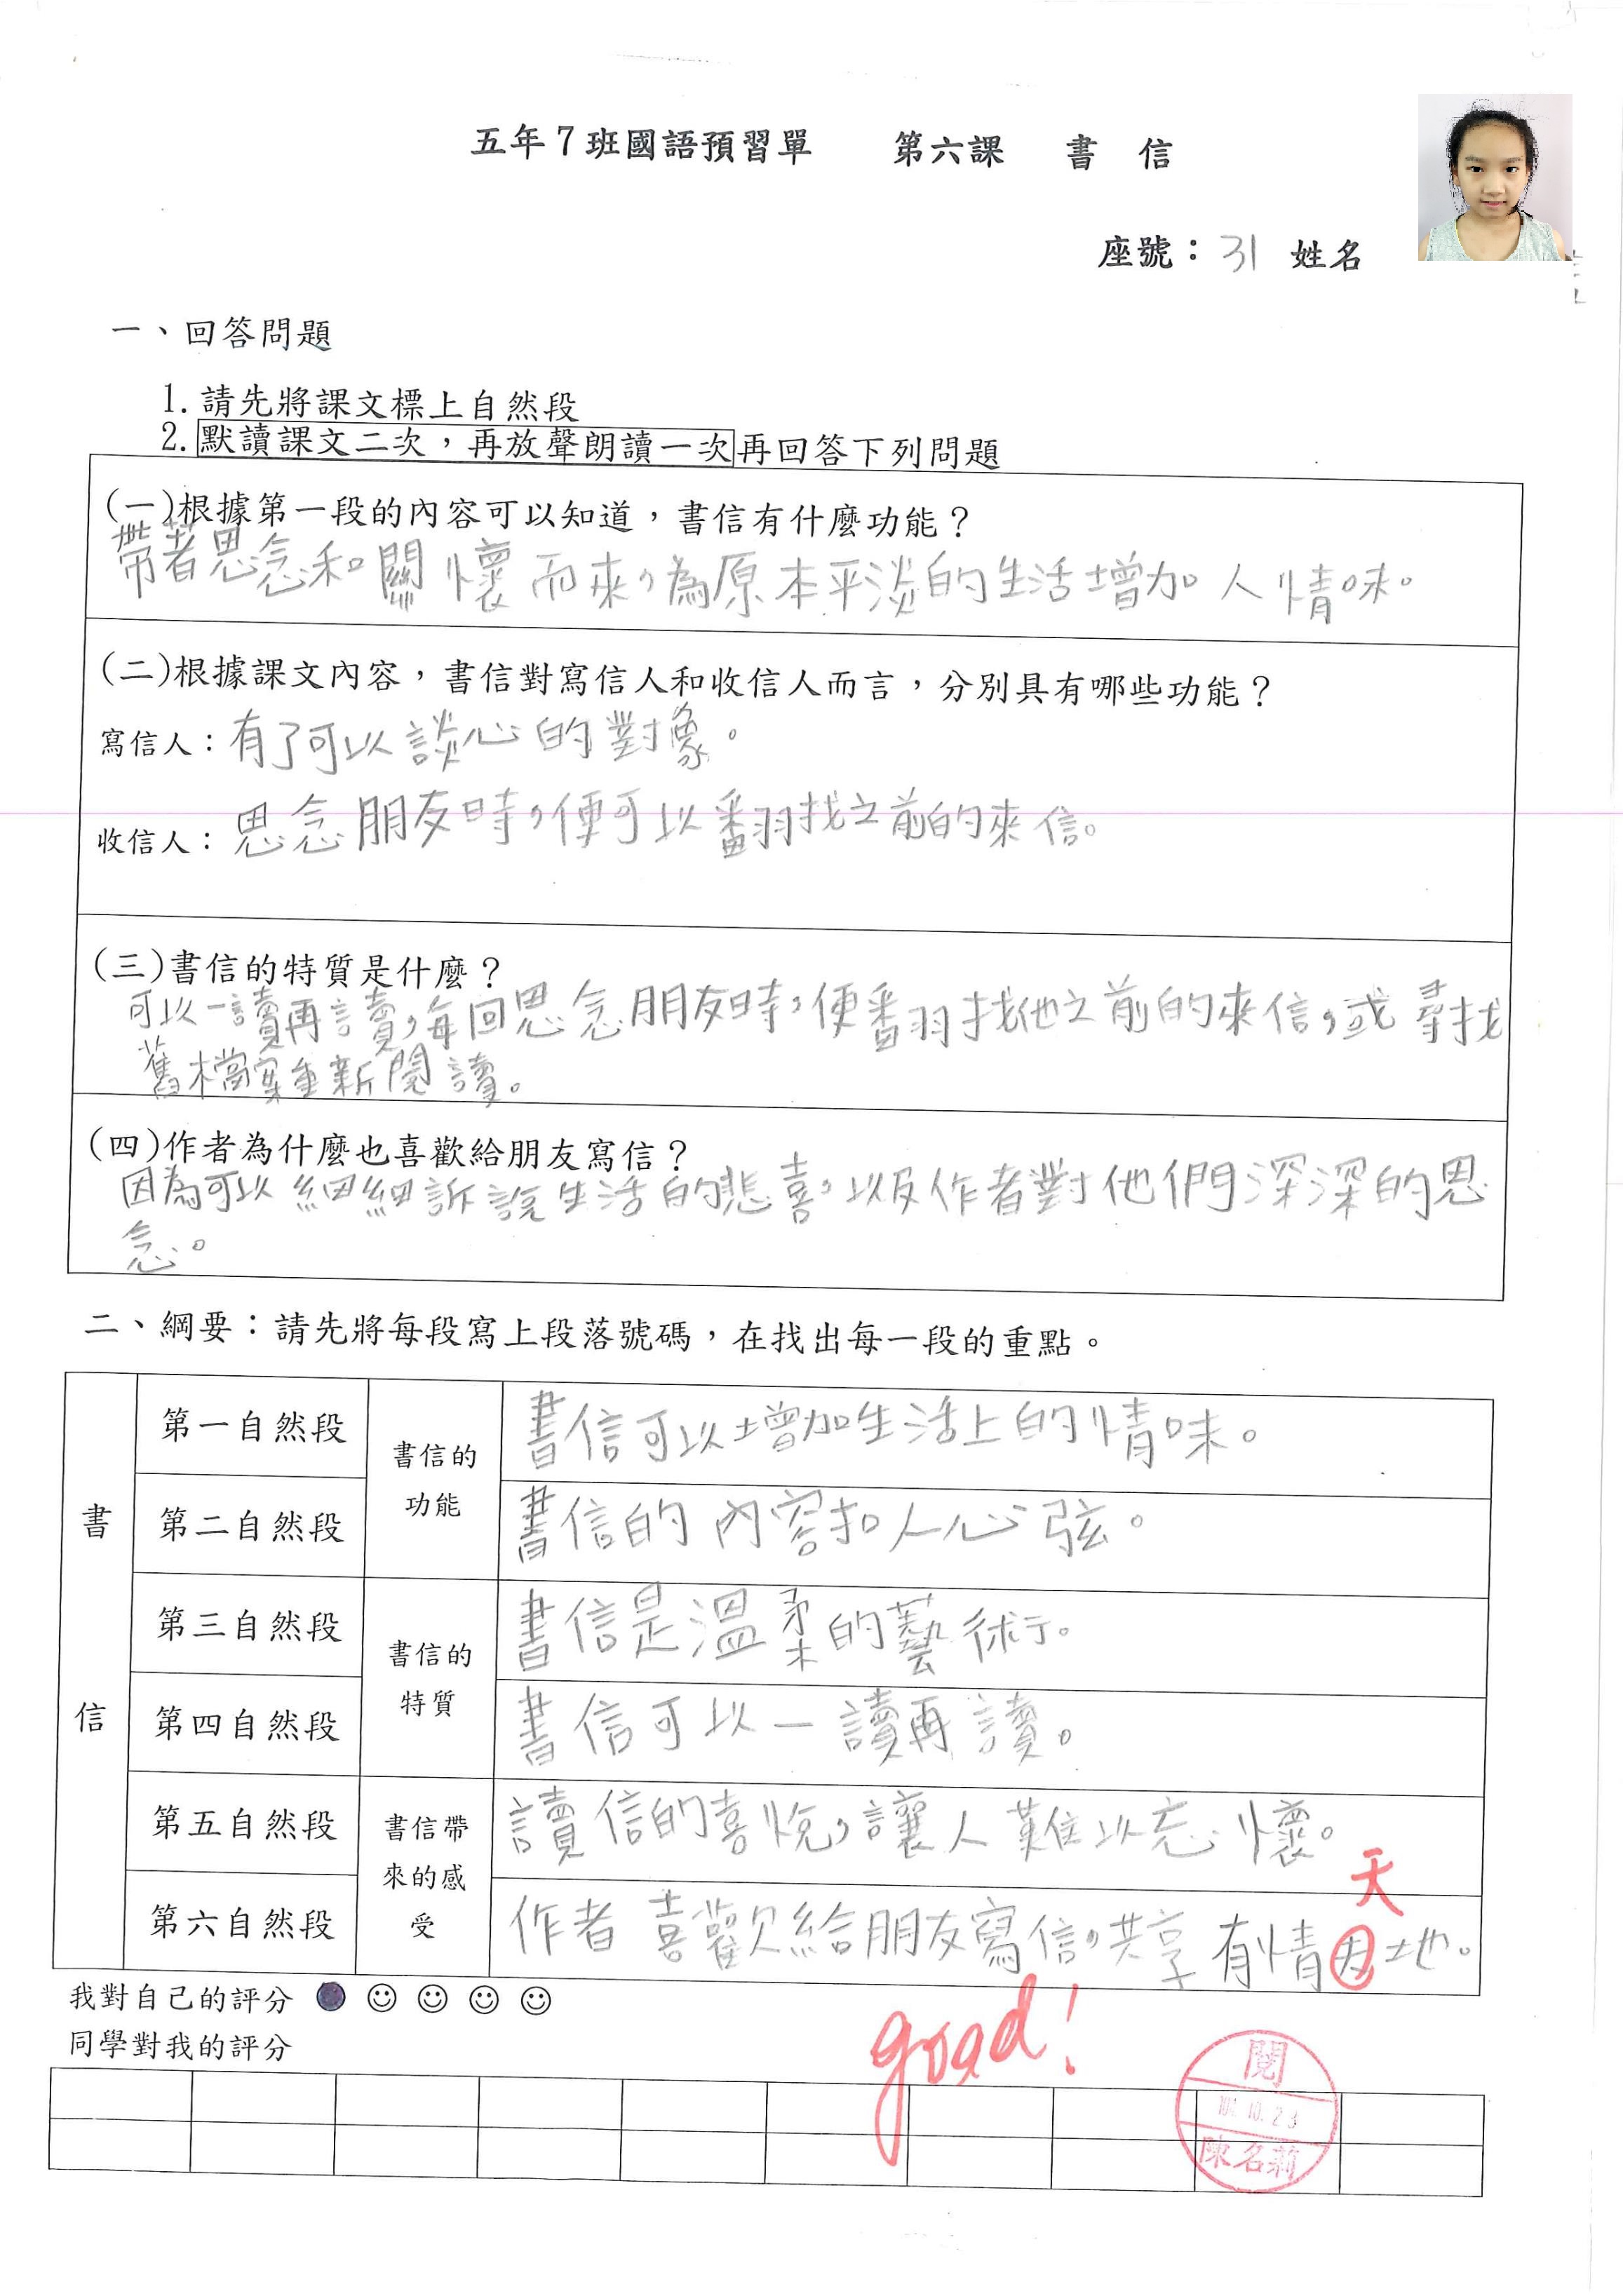 五年7班國語預習單 第六課 書信
座號：31 姓名
一、回答問題
1. 請先將課文標上自然段
2. 默讀課文二次，再放聲朗讀一次再回答下列問題
(一)根據第一段的內容可以知道，書信有什麼功能？
帶著思念和關懷而來，為原本平淡的生活增加人情味。
(二)根據課文內容，書信對寫信人和收信人而言，分別具有哪些功能？
寫信人：有了可以談心的對象。
收信人：思念朋友時，便可以翻找之前的來信。
(三)書信的特質是什麼？
可以一讀再讀，每回思念朋友時，便翻找他之前的來信，或尋找
舊檔案重新閱讀。
(四)作者為什麼也喜歡給朋友寫信？
因為可以細細訴說生活的悲喜，以及作者對他們深深的思
念。
二、綱要：請先將每段寫上段落號碼，在找出每一段的重點。
書信
第一自然段
書信的功能
書信可以增加生活上的情味。
第二自然段
書信的內容扣人心弦。
第三自然段
書信的特質
書信是溫柔的藝術。
第四自然段
書信可以一讀再讀。
第五自然段
書信帶來的感受
讀信的喜悅，讓人難以忘懷。
天
第六自然段
作者喜歡給朋友寫信，共享有情因地。
我對自己的評分
同學對我的評分
good!
閱
10.23
陳名莉